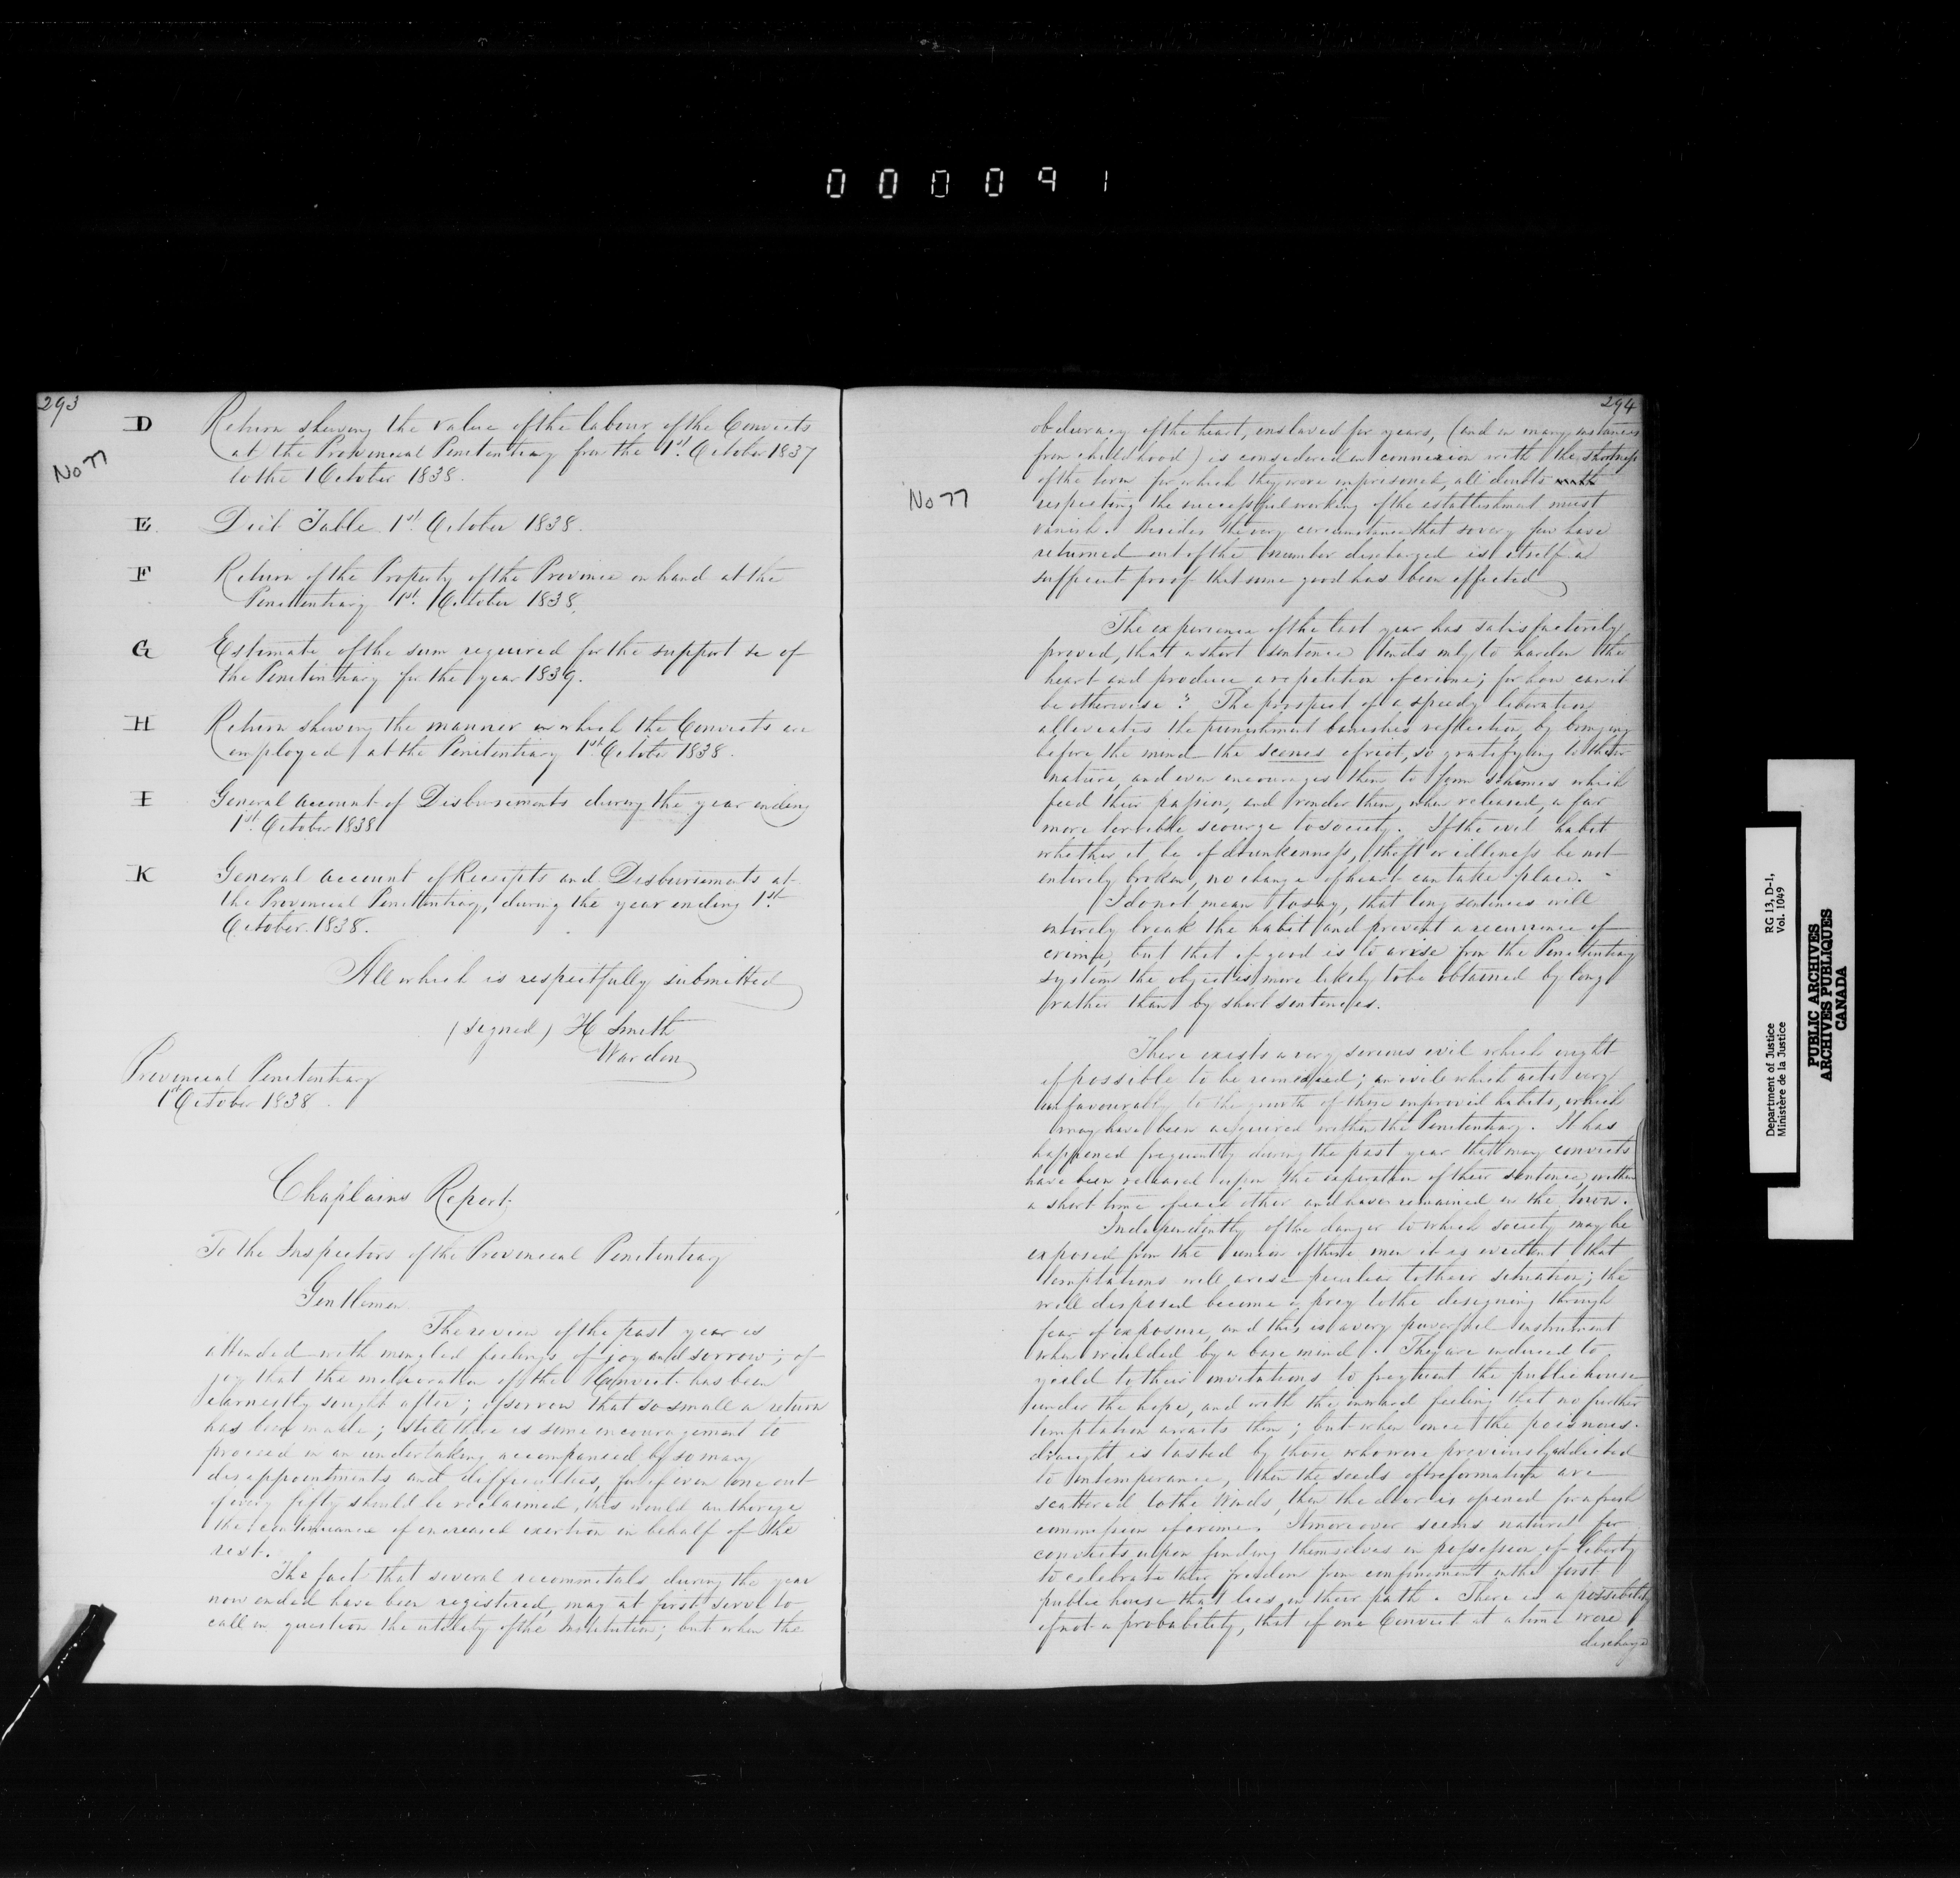 000091
293
No 77
D Return shewing the value of the labour of the Convicts
at the Provincial Penitentiary from the 1st. October 1837
to the 1 October 1838.
E. Diet Table 1st. October 1838.
F Return of the Property of the Province on hand at the
Penitentiary 1st. October 1838.
G Estimate of the sum required for the support &c of
the Penitentiary for the year 1839.
H Return shewing the manner in which the Convicts are
employed at the Penitentiary 1st October 1838.
I General Account of Disbursements during the year ending
1st. October 1838
K General Account of Receipts and Disbursements at
the Provincial Penitentiary, during the year ending 1st.
October 1838.
All which is respectfully submitted
(signed) H Smith
Warden
Provincial Penitentiary
1st October 1838.
Chaplains Report
To the Inspectors of the Provincial Penitentiary
Gentlemen
The review of the past year is
attended with mingled feelings of joy and sorrow; of
joy that the melioration of the Convict has been
earnestly sought after; of sorrow that so small a return
has been made; still there is some encouragement to
proceed in an undertaking accompanied by so many
disappointments and difficulties, for if even one out
of every fifty should be reclaimed, this would authorize
the continuance of increased exertion in behalf of the
rest.
The fact that several recommittals during the year
now ended have been registered, may at first serve to
call in question the utility of the Institution; but when the
294
No 77
obduracy of the heart, enslaved for years, (and in many instances
from childhood) is considered in connexion with the shortness
of the term for which they were imprisoned, all doubts
respecting the successful working of the establishment must
vanish. Besides the very circumstance that so very few have
returned out of the number discharged is itself a
sufficient proof that some good has been effected
The experience of the last year has satisfactorily
proved, that a short sentence tends only to harden the
heart and produce a repetition of crime; for how can it
be otherwise? The prospect of a speedy liberation
alleviates the punishment banishes reflection by bringing
before the mind the scenes of riot, so gratifying to their
nature, and even encourages them to form schemes which
feed their passion, and render them, when released, a far
more terrible scourge to society. If the evil habit
whether it be of drunkenness, theft or idleness be not
entirely broken, no change of heart can take place.
I do not mean to say, that long sentences will
entirely break the habit and prevent a recurrence of
crime, but that if good is to arise from the Penitentiary
system the object is more likely to be obtained by long
rather than by short sentences.
There exists a very serious evil which ought
if possible to be remedied; an evil which acts very
unfavourably to the growth of those improved habits, which
may have been acquired within the Penitentiary. It has
happened frequently during the past year that many convicts
have been released upon the expiration of their sentence within
a short time of each other and have remained in the town.
Independently of the danger to which society may be
exposed from the union of these men it is evident that
temptations will arise peculiar to their situation; the
well disposed become a prey to the designing through
fear of exposure, and this is a very powerful instrument
when wielded by a base mind. They are induced to
yield to their invitations to frequent the public house
under the hope, and with the inward feeling that no further
temptation awaits them; but when once the poisnous
draught is tasted by those who were previously addicted
to intemperance, then the seeds of reformation are
scattered to the winds, then the door is opened for a fresh
commission of crime. It moreover seems natural for
convicts upon finding themselves in possession of liberty
to celebrate their freedom from confinement in the first
public house that lies in their path. There is a possibility
if not a probability, that if one Convict at a time were
discharged
Department of Justice
Ministère de la Justice
RG 13, D-1,
Vol. 1049
PUBLIC ARCHIVES
ARCHIVES PUBLIQUES
CANADA